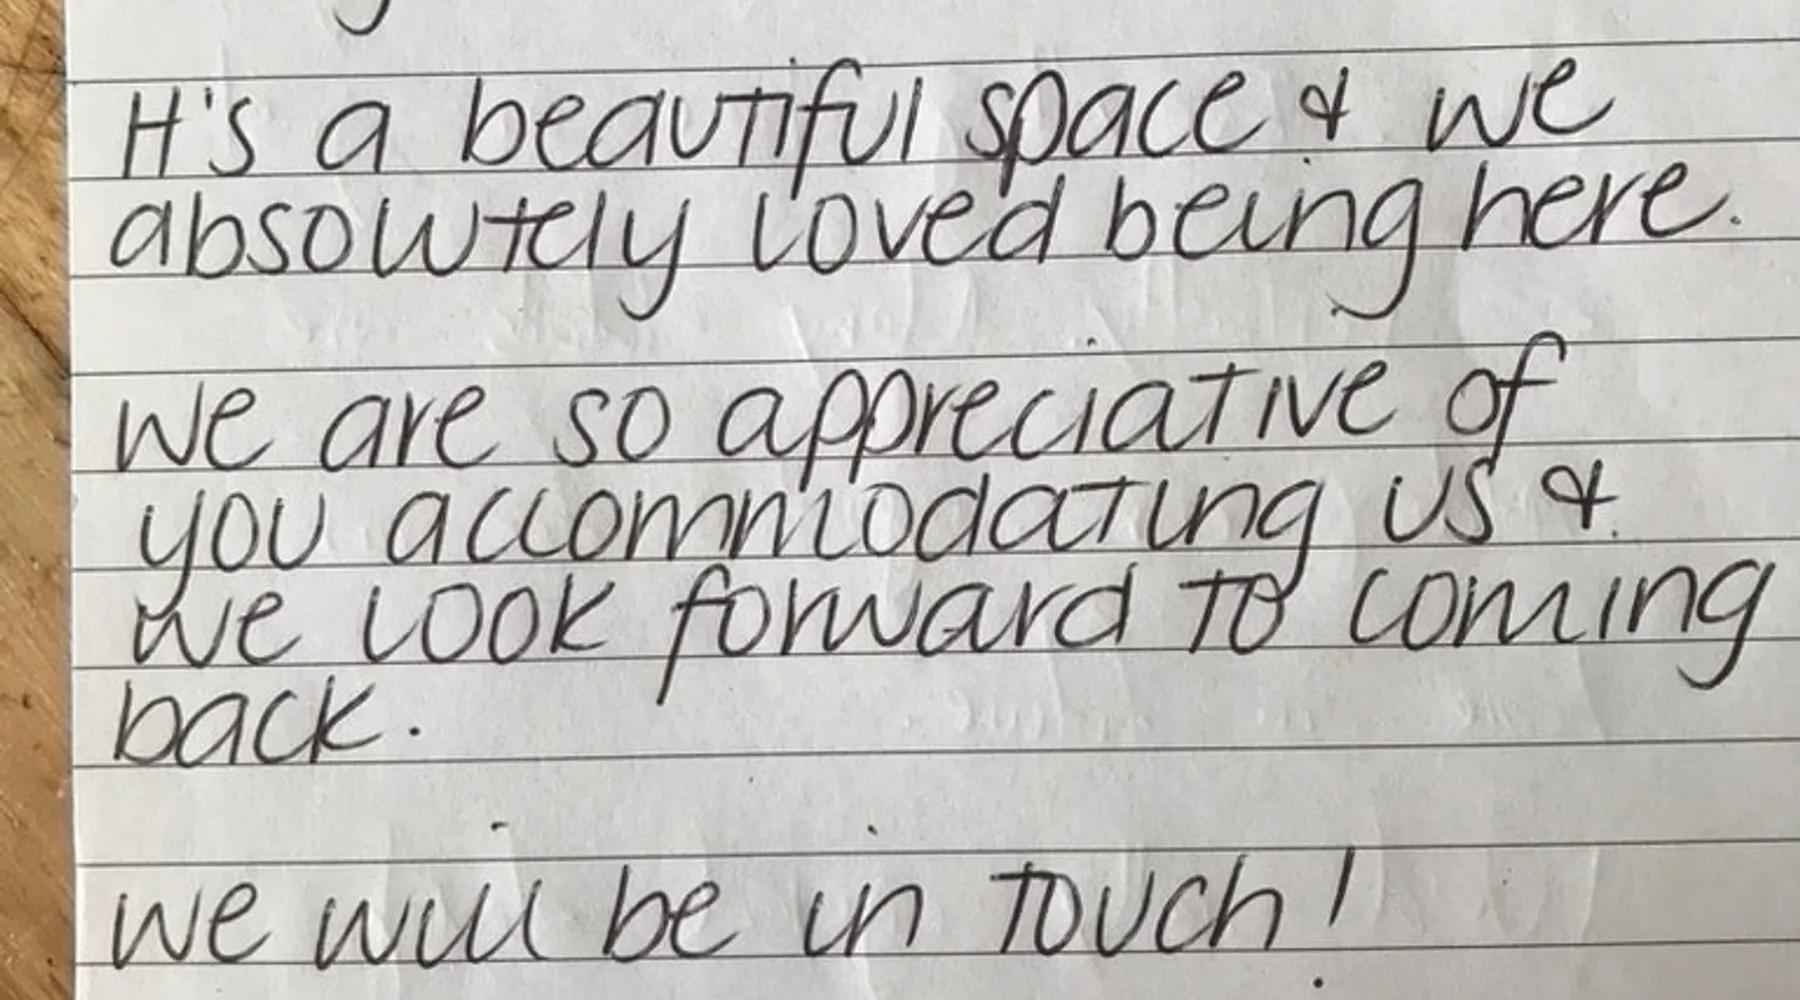 It's a beautiful space & we
absolutely loved being here.
We are so appreciative of
you accommodating us &
we look forward to coming
back.
We will be in touch!